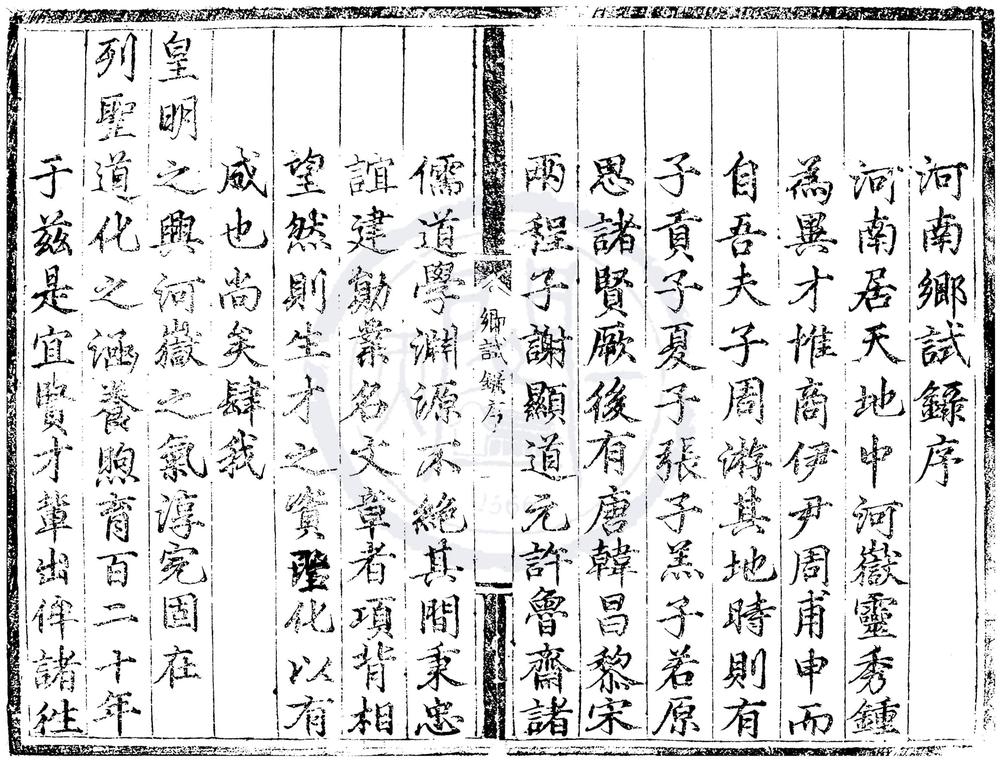 河南鄉試錄序
河南居天地中河嶽靈秀鍾
為異才惟商伊尹周甫申而
自吾夫子周游其地時則有
子貢子夏子張子羔子若原
思諸賢厥後有唐韓昌黎宋
兩程子謝顯道元許魯齋諸
鄉試錄序
儒道學淵源不絶其間秉忠
誼建勛業名文章者項背相
望然則生才之實聖化以有
咸也尚矣肆我
皇明之興河嶽之氣淳完固在
列聖道化之涵養煦育百二十年
于兹是宜賢才輩出俾諸徃